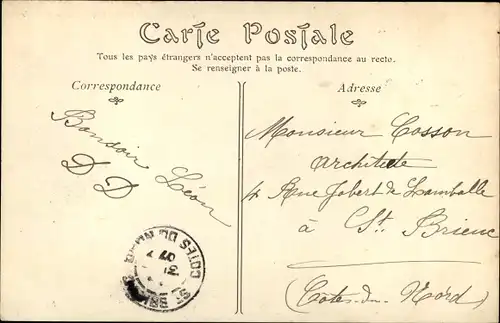 Carte Postale
Tous les pays étrangers n'acceptent pas la correspondance au recto.
Se renseigner à la poste.
Correspondance
Adresse
Bonsoir Léon
D D
Monsieur Cosson
Architecte
4 Rue Jobert de Lamballe
à St. Brieuc
(Côtes-du-Nord)
COTES DU NORD
ST BRIEUC